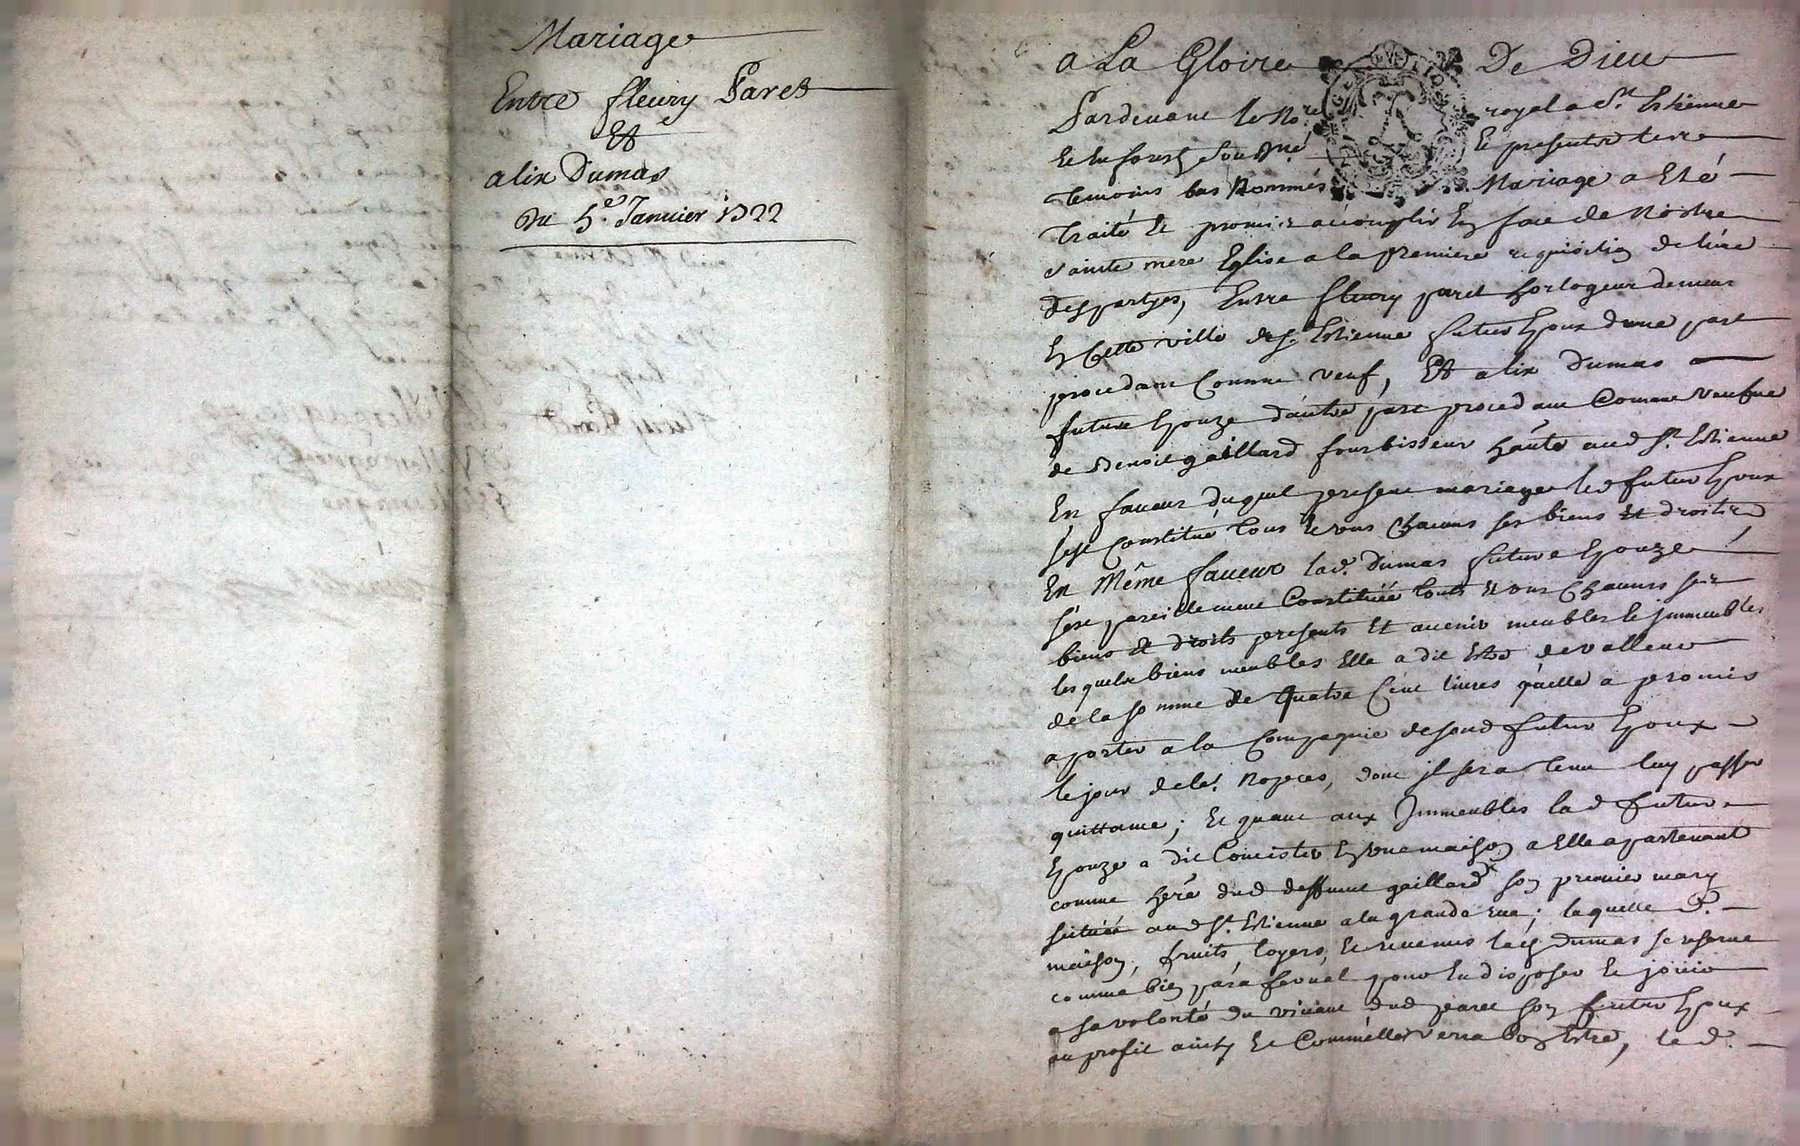 Mariage
Entre fleury Paret
Et
alix Dumas
Du 5e. Janvier 1722
a La Gloire De Dieu
Pardevant le No.re royal a St. Estienne
et temoins bas Nommés Mariage a Eté
traité et promis accomplir En face de Nostre
sainte mere Eglise a la premiere requisition de l'une
des partyes, Entre fleury paret horlogeur demeur
En Cette ville de St. Estienne futur Epoux d'une part
procedant Comme veuf, Et alix Dumas
future Epouze d'autre part procedant Comme veufve
de Benoit gaillard fourbisseur aud St. Estienne
En faveur duquel present mariage led futur Epoux
s'est Constitué tous et uns Chacuns ses biens Et droits
En Même faveur lad. Dumas future Epouze
s'est pareillement Constituée touts et uns Chacuns ses
biens Et droits presents Et avenir meubles et jmmeubles
lesquels biens meubles Elle a dit Estre de valleur
de la somme de Quatre Cent livres qu'elle a promis
aporter a la Compagnie de soud futur Epoux
le jour de les Nopces, dont jl sera tenu luy passer
quittance; Et quant aux Jmmeubles lad future
Epouze a dit Concister En une maison a Elle apartenant
comme here. dud deffunt gaillard son premier mary
scituée aud St. Estienne a la grande rue; laquelle
maison, fruits, loyers, et revenus lad Dumas se reserve
comme bien parafernal pour En disposer Et joüir
a sa volonté du vivant dud paret son futur Epoux
au profit ainsy Et Comm'elle verra bon Estre, led.